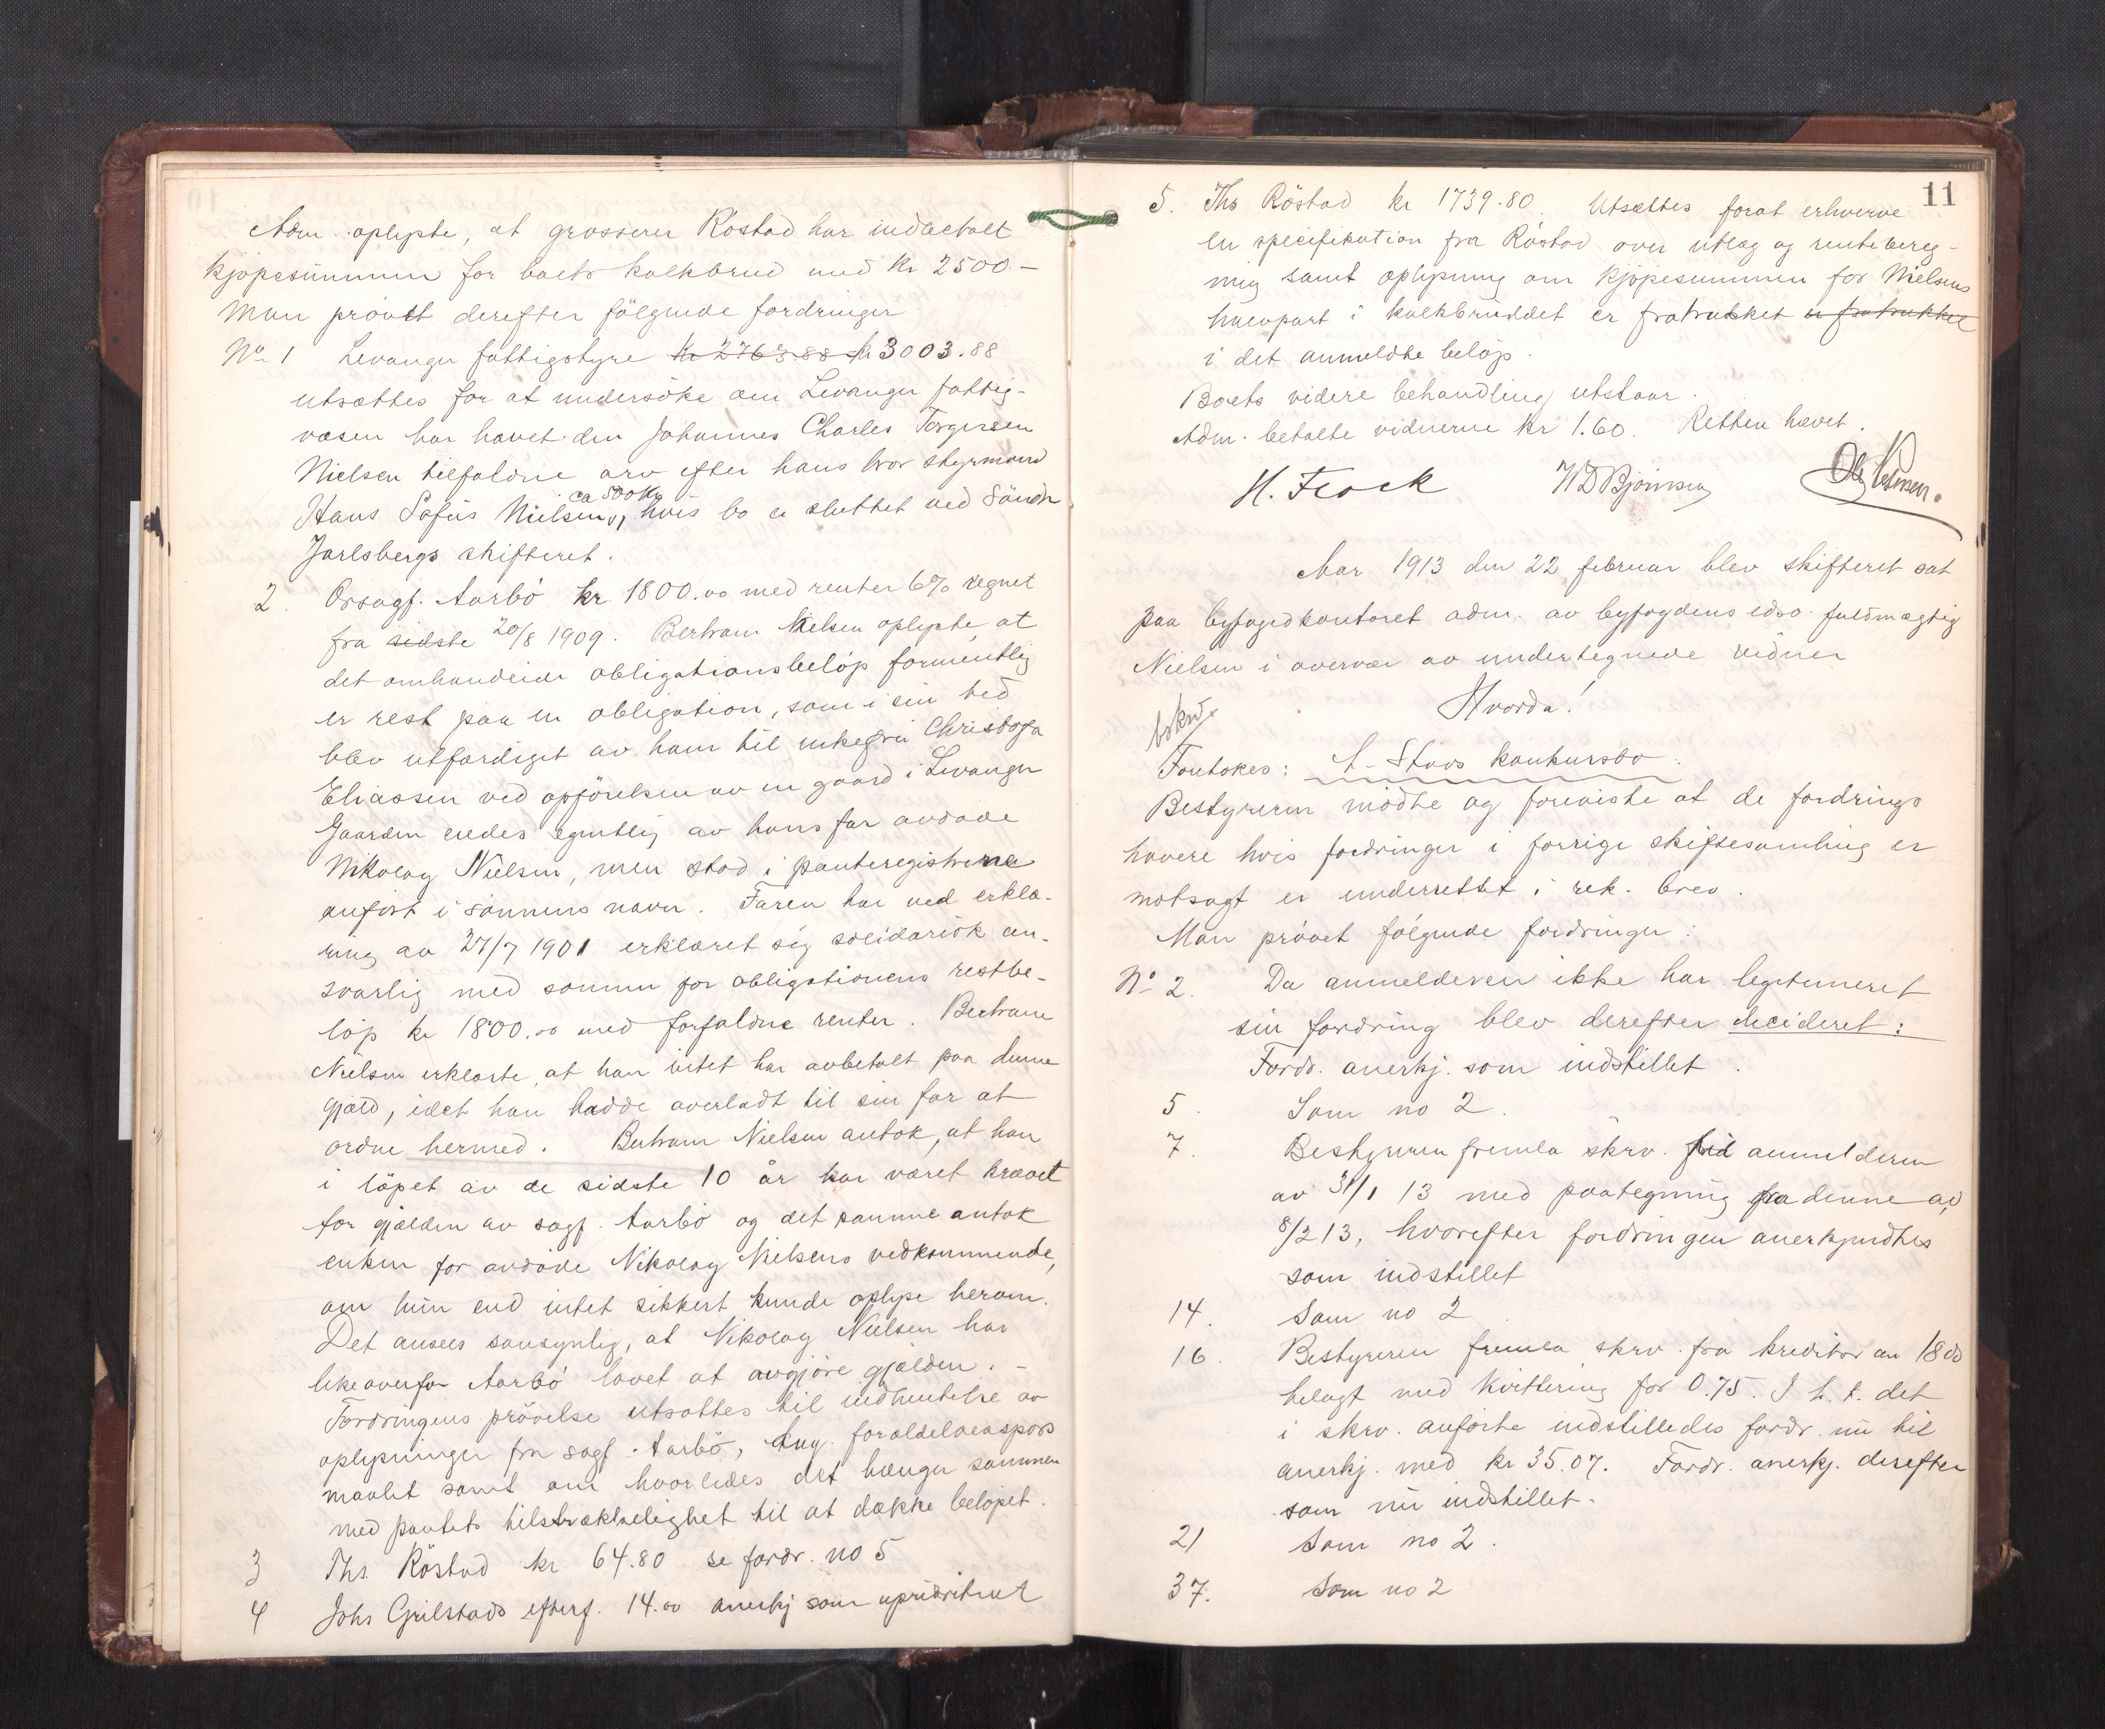 Adm. oplyste, at grosserer Röstad har indbetalt
kjöpesummen for boets kalkbrud med kr 2500.—
Man prövet derefter fölgende fordringer
No 1 Levanger fattigstyre kr 2763.88 kr 3003.88
utsættes for at undersöke om Levanger fattig-
væsen har hævet den Johannes Charles Torgersen
Nielsen tilfaldne arv efter hans bror styrmand
ca 500 kr
Hans Sofus Nielsen, hvis bo er sluttet ved Söndre
Jarlsbergs skifteret.
2. Orsagf. Aarbö kr 1800.00 med renter 6% regnet
fra sidste 20/8 1909. Bertram Nielsen oplyste at
det omhandlede obligationsbelöp formentlig
er rest paa en obligation, som i sin tid
blev utfærdiget av ham til enkefru Christofa
Eliassen ved opförelsen av en gaard i Levanger
Gaarden eiedes egentlig av hans far avdöde
Nikolay Nielsen, men stod i panteregistrene
anfört i sönnens navn. Faren har ved erklæ-
ring av 27/7 1901 erklæret sig solidarisk an-
svarlig med sönnen for obligationens restbe-
löp kr 1800.00 med forfaldne renter. Bertram
Nielsen erklærte, at han intet har avbetalt paa denne
gjæld, idet han hadde overladt til sin far at
ordne hermed. Bertram Nielsen antok, at han
i löpet av de sidste 10 år har været krævet
for gjælden av sagf. Aarbö og det samme antok
enken for avdöde Nikolay Nielsens vedkommende,
om hun end intet sikkert kunde oplyse herom.
Det ansees sansynlig, at Nikolay Nielsen har
likeoverfor Aarbö lovet at avgjöre gjælden. —
Fordringens prövelse utsattes til indhentelse av
oplysninger fra sagf. Aarbö, ang. forældelsesspörs
maalet samt om hvorledes det hænger sammen
med pantets tilstrækkelighet til at dække belöpet.
3 Ths. Röstad kr 64.80 se fordr. no 5
4 Johs Grilstads efterf. 14.00 anerkj som uprioritert
11
5. Ths Röstad kr 1739.80. Utsættes forat erhverve
en specifikation fra Röstad over utlæg og rentebereg-
ning samt oplysning om kjöpesummen for Nielsens
halvpart i kalkbruddet er fratrukket er fratrukket
i det anmeldte belöp.
Boets videre behandling utstaar.
Adm. betalte vidnerne kr 1.60. Retten hævet.
H. Flock W D Björnsen Ole Petersen.
Aar 1913 den 22 februar blev skifteret sat
paa byfogedkontoret adm. av byfogdens edsv. fuldmægtig
Nielsen i overvær av undertegnede vidner
Hvorda!
bskrv.
Foretokes: A. Stavs konkursbo.
Bestyreren mödte og foreviste at de fordrings
havere hvis fordringer i forrige skiftesamling er
motsagt er underrettet i rek. brev.
Man prövet fölgende fordringer:
No 2. Da anmelderen ikke har legitimeret
sin fordring blev derefter decideret:
Fordr. anerkj. som indstillet.
5. Som no 2.
7. Bestyreren fremla skrv. til anmelderen
av 31/1 13 med paategning fra denne av
8/2 13, hvorefter fordringen anerkjendtes
som indstillet
14. Som no 2
16. Bestyreren fremla skrv. fra kreditor av 18 ds
belagt med kvittering for 0.75. I h. t. det
i skrv. anförte indstilledes fordr. nu til
anerkj. med kr 35.07. Fordr. anerkj. derefter
som nu indstillet.
21 Som no 2.
37. Som no 2